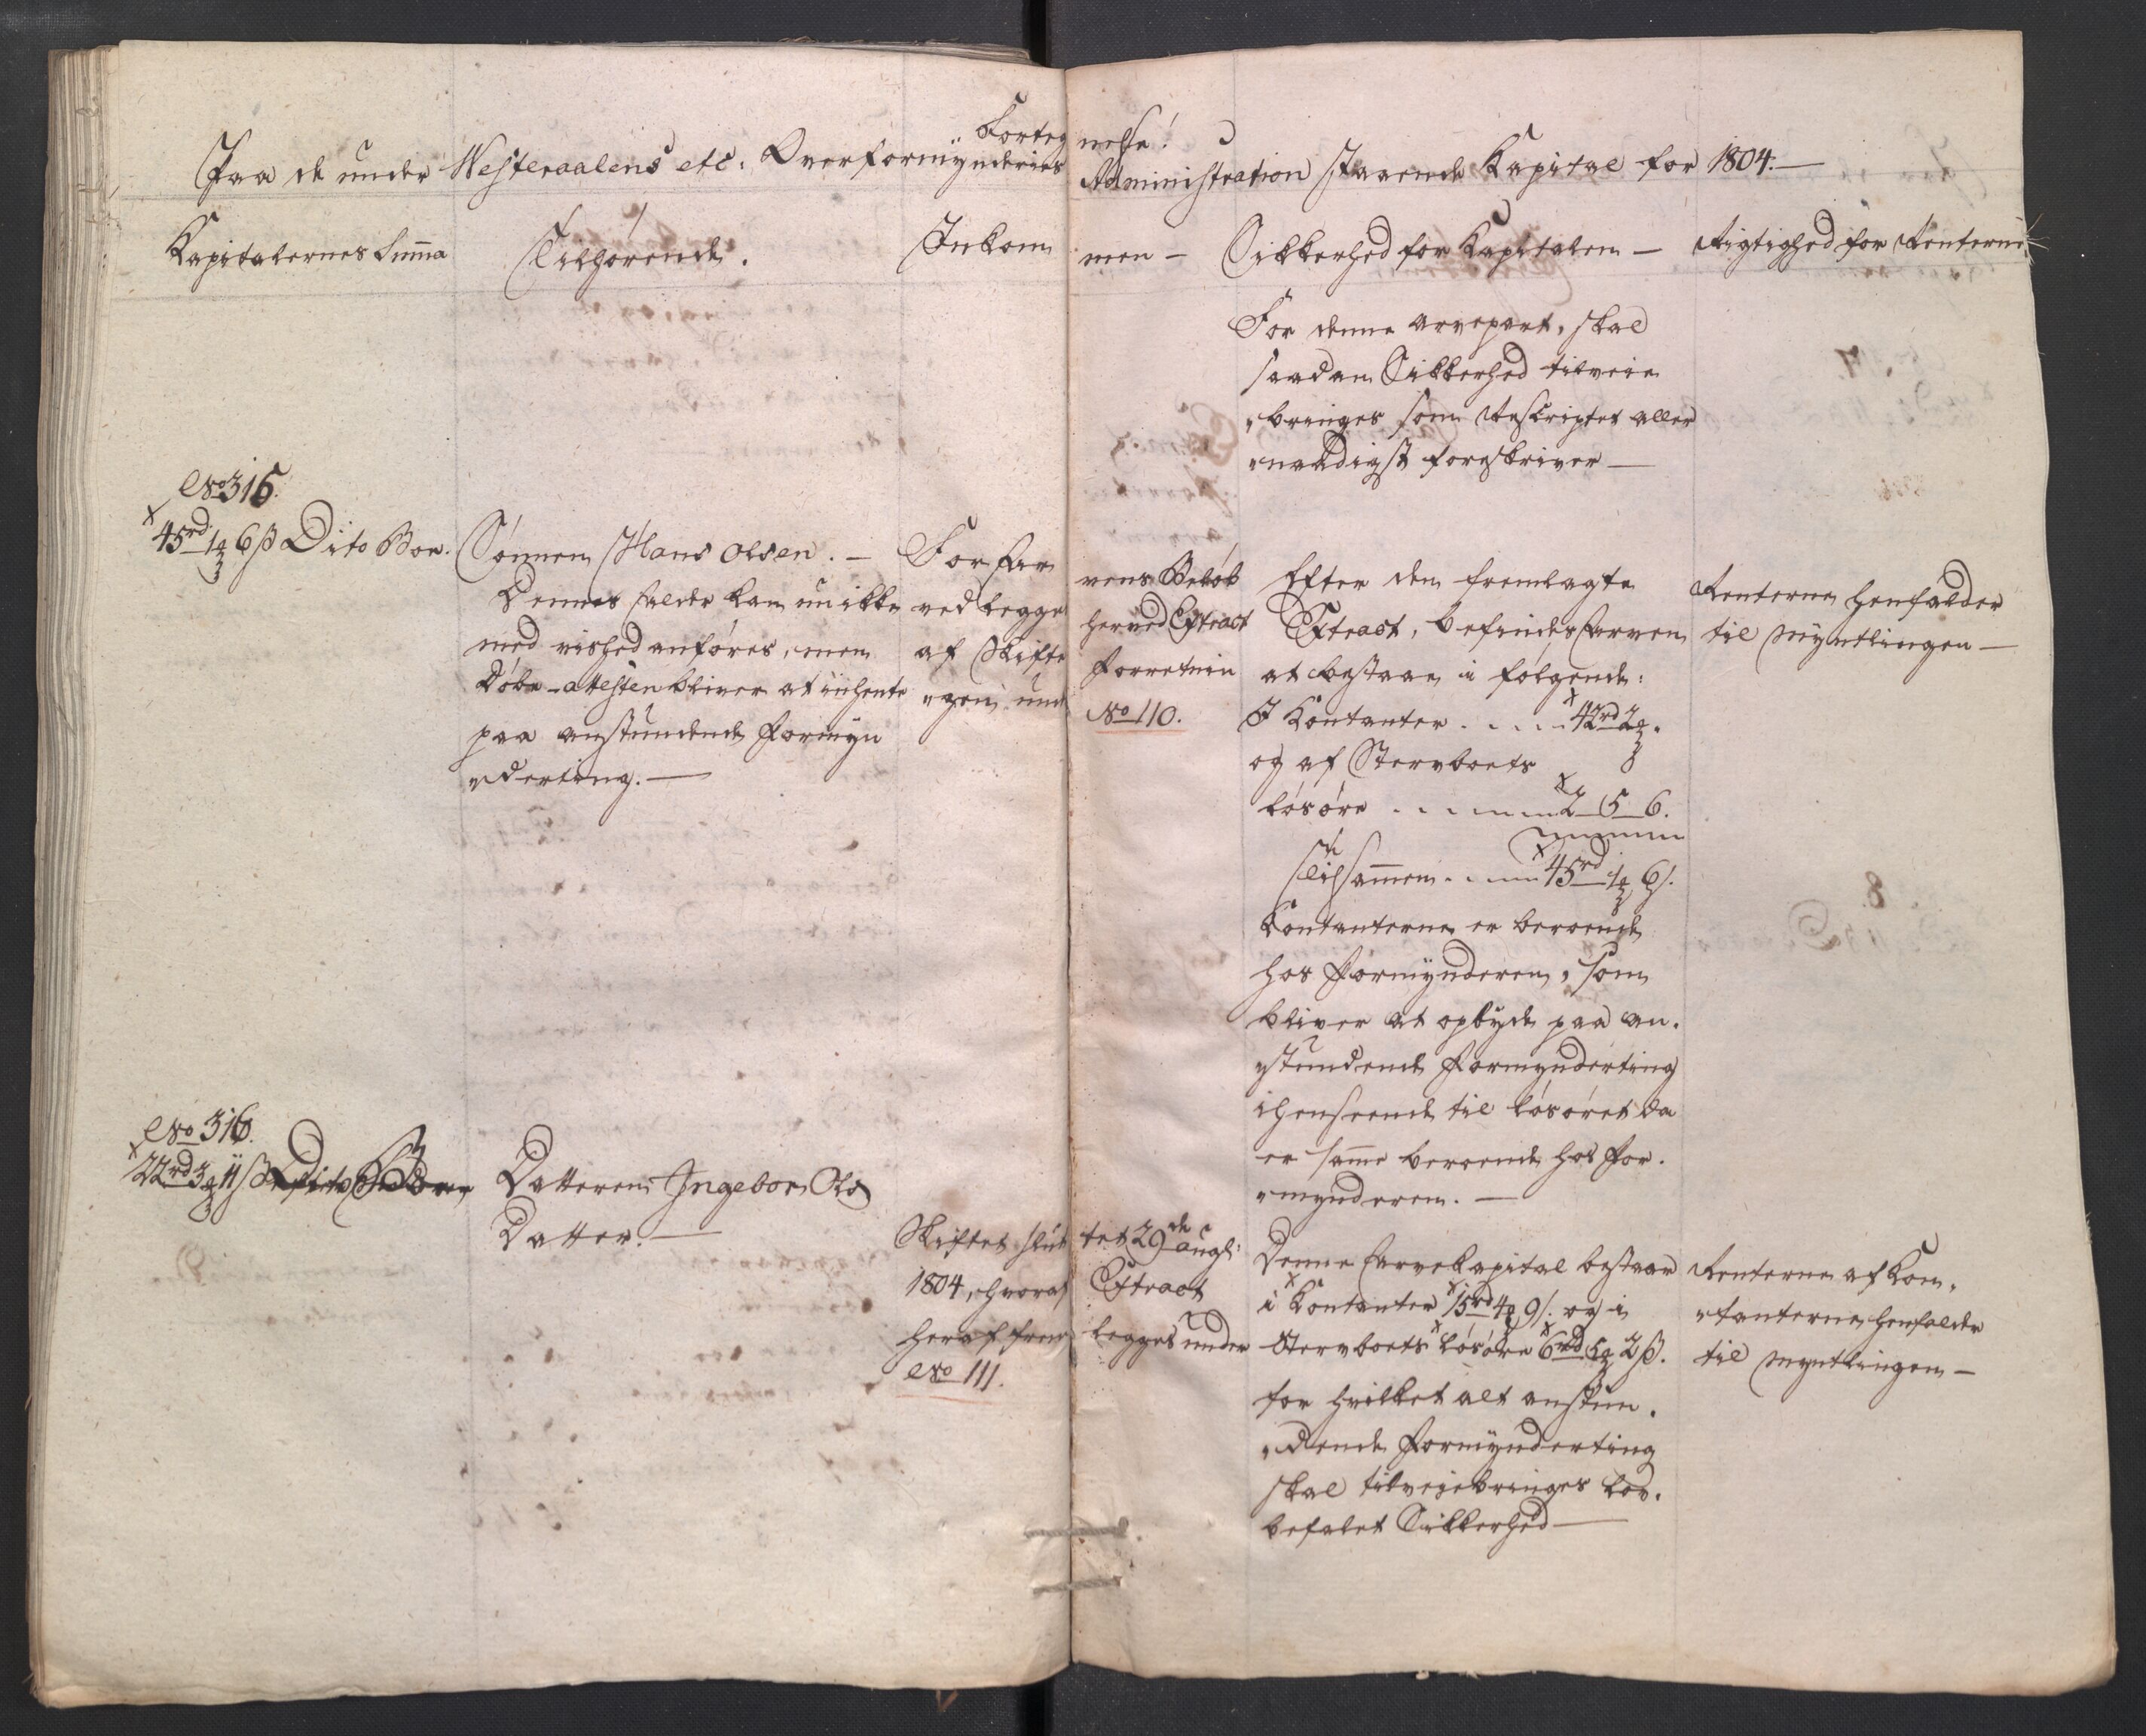 Forteg nelse!
Paa de under Westeraalens etc: Overformÿnderies Administration staaende Kapital for 1804.—
Kapitalernes Sum̄a
Tilhørende.
Inkom men —
Sikkerhed for Kapitalen —
Rigtighed for Renterne
For denne arvepart, skal
saadan Sikkerhed tilveie
„bringes som Reskriptet aller
„naadigst foreskriver —
No 315.
45rd 1 6 ß Dito Boe.
Sønnen Hans Olsen. —
Dennes Alder kan nu ikke
med vished anføres, men
Døbe-attesten bliver at indhente
paa anstundende Formyn
„derting. —
For Ar vens Beløb
ved legges herved Extract
af Skifte Forretnin
„gen und No 110.
Efter den fremlagte
Extract, befindes Arven
at bestaae i følgende:
I Kontanter . . . . 42rd 2
og af Sterboets
løsøre . . . . 2 5 6.
Tilsam̄en . . . 45rd 1 6 ß.
Kontanterne er beroende
hos Formÿnderen, som
bliver at opbyde paa an-
„stundende Formynderting
ihenseende til løsøret da
er sam̄e beroende hos For-
„mynderen. —
Renterne henfalder
til Myntlingen —
No 316.
22rd 3 11 ß Dito Boe
Datteren Ingebor Ols
Datter. —
Skiftet slut tet 29de Augst:
1804, hvoraf Extract
heraf frem legges under
No 111.
Denne Arvekapital bestaar
i Kontanter 15rd 4 9 ß. og i
Sterboets løsøre 6rd 5 2 ß.
for hvilket alt anstun-
„dende Formÿnderting
skal tilvejebringes lov-
befalet Sikkerhed —
Renterne af Kon-
„tanterne henfalder
til Myntlingen —